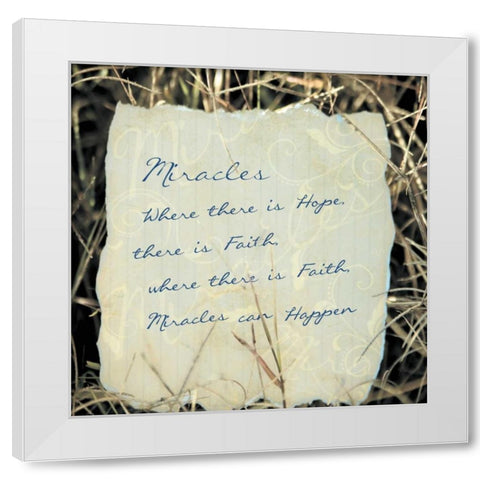 Miracles
Where there is Hope,
there is Faith,
where there is Faith,
Miracles can Happen